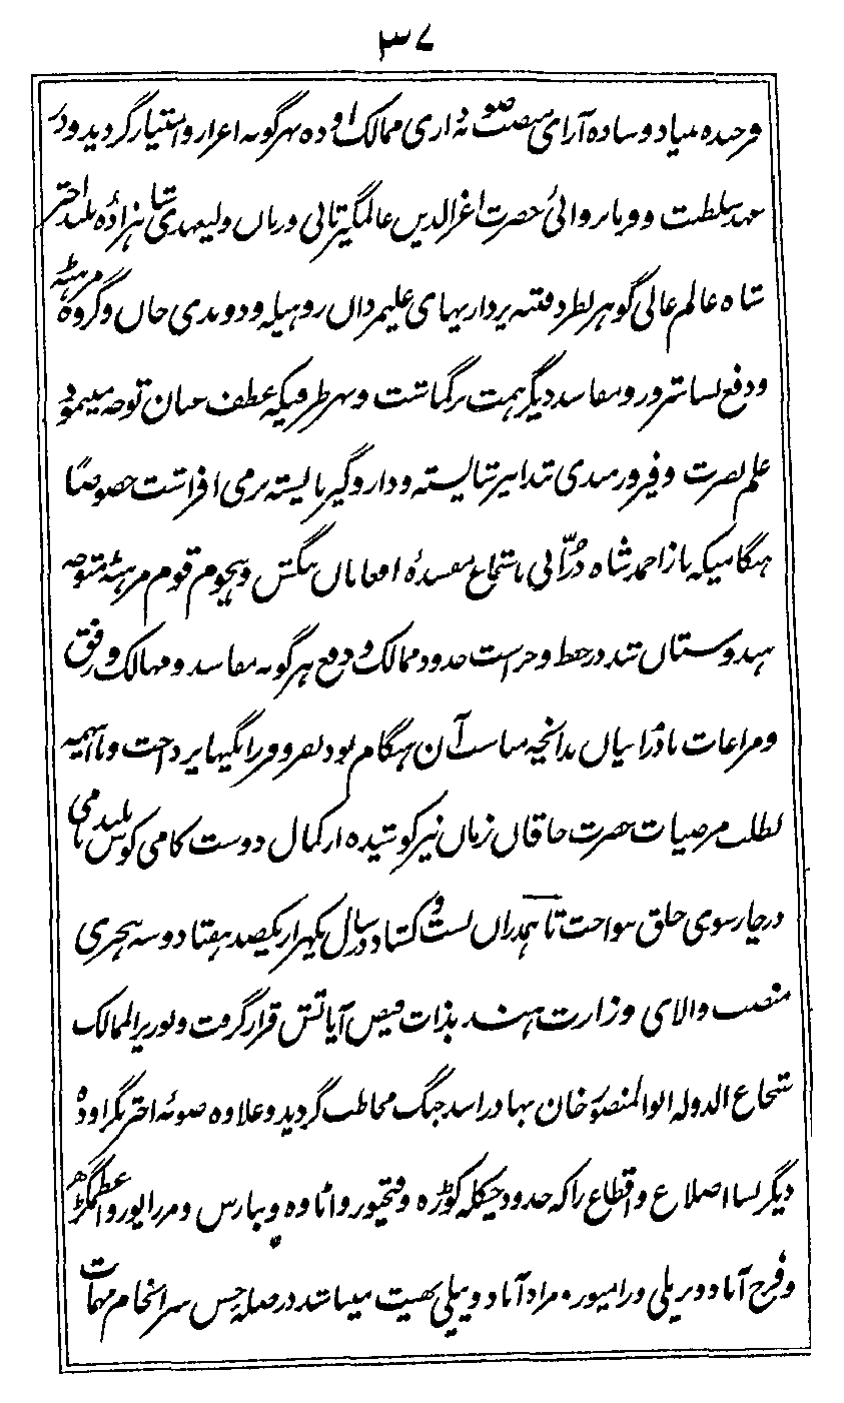 ۳۷
فرخنده بنیاد وساده آرای منصب صوبه داری ممالک اوده بهرگونه اعزاز وامتیاز گردید ودر
عهد سلطنت وفرمانروائی حضرت اعزالدین عالمگیر ثانی وزمان ولیعهدی شاهزادهٔ بلند اختر
شاه عالم عالی گوهر بطرد فتنه پردازیهای علیمردان روهیله ودوندی خان وگروه مرهٹه
ودفع بسا شرور ومفاسد دیگر همت برگماشت وبهر طرفیکه عطف عنان توجه مینمود
علم نصرت وفیروزمندی تدابیر شایسته وداروگیر بایسته برمی افراشت خصوصاً
هنگامیکه باز احمد شاه دُرّانی باستماع مفسدهٔ افغانان بنگش وهجوم قوم مرهٹه متوجه
هندوستان شد در حفظ وحراست حدود ممالک ودفع هرگونه مفاسد ومهالک ورفق
ومراعات با درانیان بدانچه مناسب آن هنگام بود بفر وفرزانگیها پرداخت وبا اینهمه
بطلب مرضیات حضرت خاقان زمان نیز کوشیده از کمال دوست کامی کوس بلند نامی
در چارسوی خلق نواخت تا همدران بست وکشاد در سال یکهزار یکصد هفتاد وسه هجری
منصب والای وزارت هند بذات فیض آیاتش قرار گرفت وبوزیر الممالک
شجاع الدوله ابوالمنصور خان بهادر اسد جنگ مخاطب گردید وعلاوه صوبهٔ اختر نگر اوده
دیگر بسا اضلاع واقطاع را که حدود چکله کوڑه وفتحپور واٹاوه وبنارس ومرزاپور واعظمگڑھ
وفرخ آباد وبریلی ورامپور مرادآباد وپیلی بهیت میباشد در صله حسن سرانجام مهمات